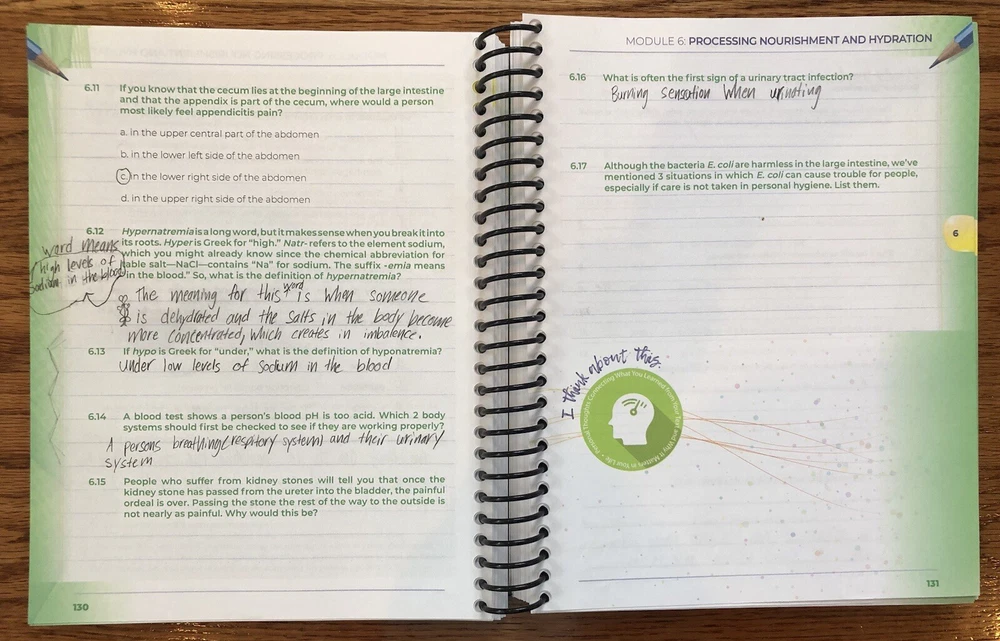 6.11 If you know that the cecum lies at the beginning of the large intestine
and that the appendix is part of the cecum, where would a person
most likely feel appendicitis pain?
a. in the upper central part of the abdomen
b. in the lower left side of the abdomen
c. in the lower right side of the abdomen
d. in the upper right side of the abdomen
6.12 Hypernatremia is a long word, but it makes sense when you break it into
its roots. Hyper is Greek for "high." Natr- refers to the element sodium,
which you might already know since the chemical abbreviation for
table salt—NaCl—contains "Na" for sodium. The suffix -emia means
"in the blood." So, what is the definition of hypernatremia?
word means
high levels of
sodium in the blood
The meaning for this word is when someone
is dehydrated and the salts in the body become
more concentrated, which creates in imbalence.
6.13 If hypo is Greek for "under," what is the definition of hyponatremia?
Under low levels of sodium in the blood
6.14 A blood test shows a person's blood pH is too acid. Which 2 body
systems should first be checked to see if they are working properly?
A persons breathing(respitory system) and their urinary
system
6.15 People who suffer from kidney stones will tell you that once the
kidney stone has passed from the ureter into the bladder, the painful
ordeal is over. Passing the stone the rest of the way to the outside is
not nearly as painful. Why would this be?
130
MODULE 6: PROCESSING NOURISHMENT AND HYDRATION
6.16 What is often the first sign of a urinary tract infection?
Burning sensation when urinating
6.17 Although the bacteria E. coli are harmless in the large intestine, we've
mentioned 3 situations in which E. coli can cause trouble for people,
especially if care is not taken in personal hygiene. List them.
6
I think about this.
Personal Thoughts Connecting What You Learned From Your Text and Why It Matters in Your Life
131